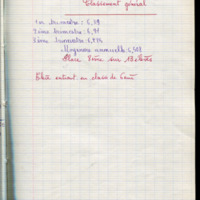 Classement général
1er trimestre : 6,89
2ème trimestre : 6,91
3ème trimestre : 6,775
Moyenne annuelle 6,
Place 8ème sur 18 élèves
Elève entrant en classe de